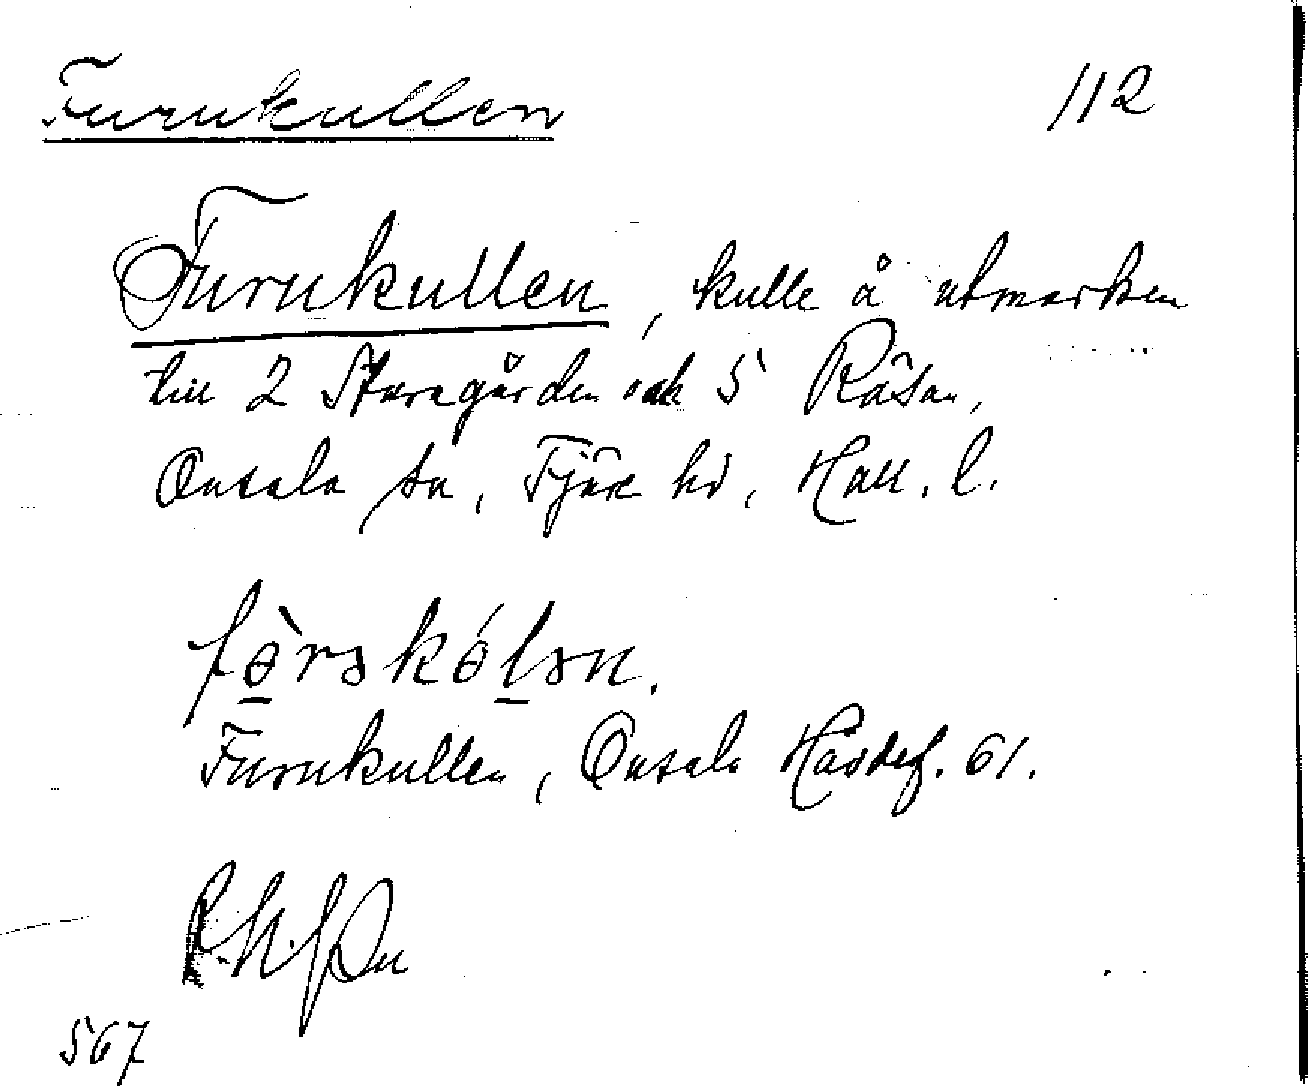 Furukullen 112
Furukullen, kulle å utmarken
till 2 Storegården och 5 Råsan,
Onsala sn, Fjäre hd, Hall. l.
fə̀rəkə́lən.
Furukullen, Onsala Häradsf. 61.
567